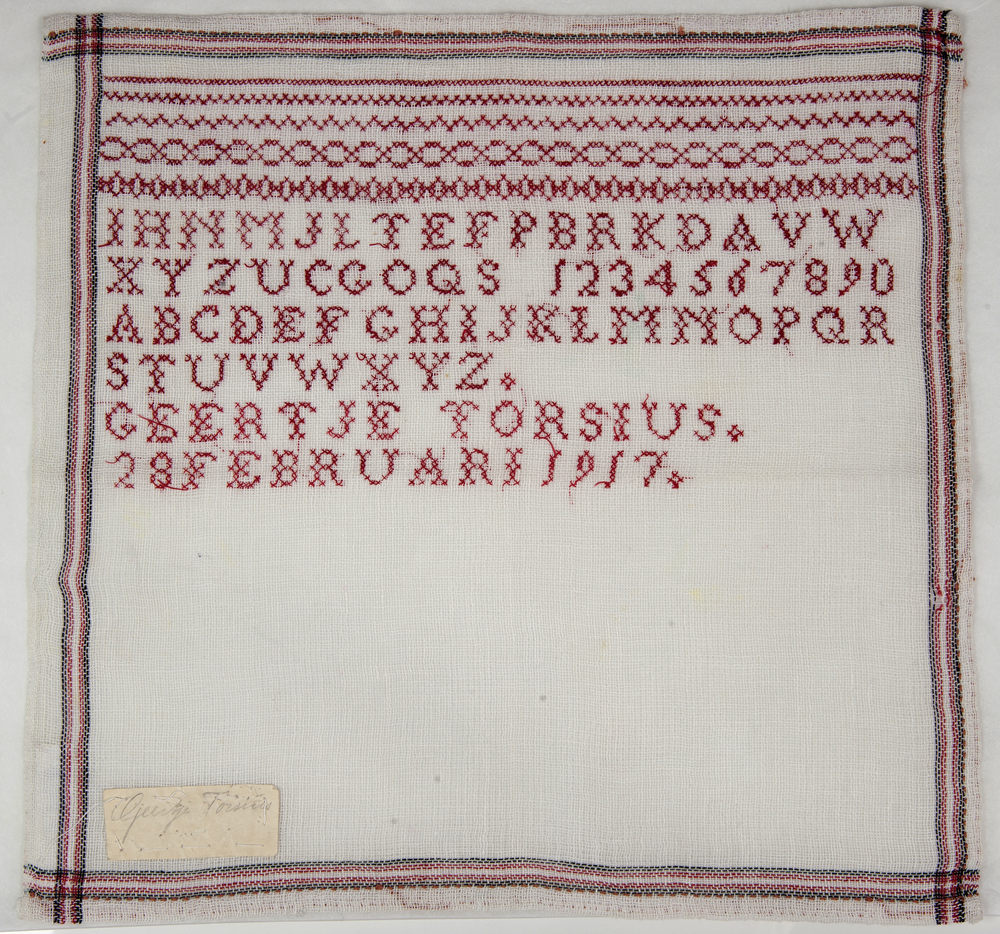 IHNMJLTEFPBRKDAVW
XYZUCGOQS 1234567890
ABCDEFGHIJKLMNOPQR
STUVWXYZ.
GEERTJE TORSIUS.
28 FEBRUARI 1917.
Geertje Torsius